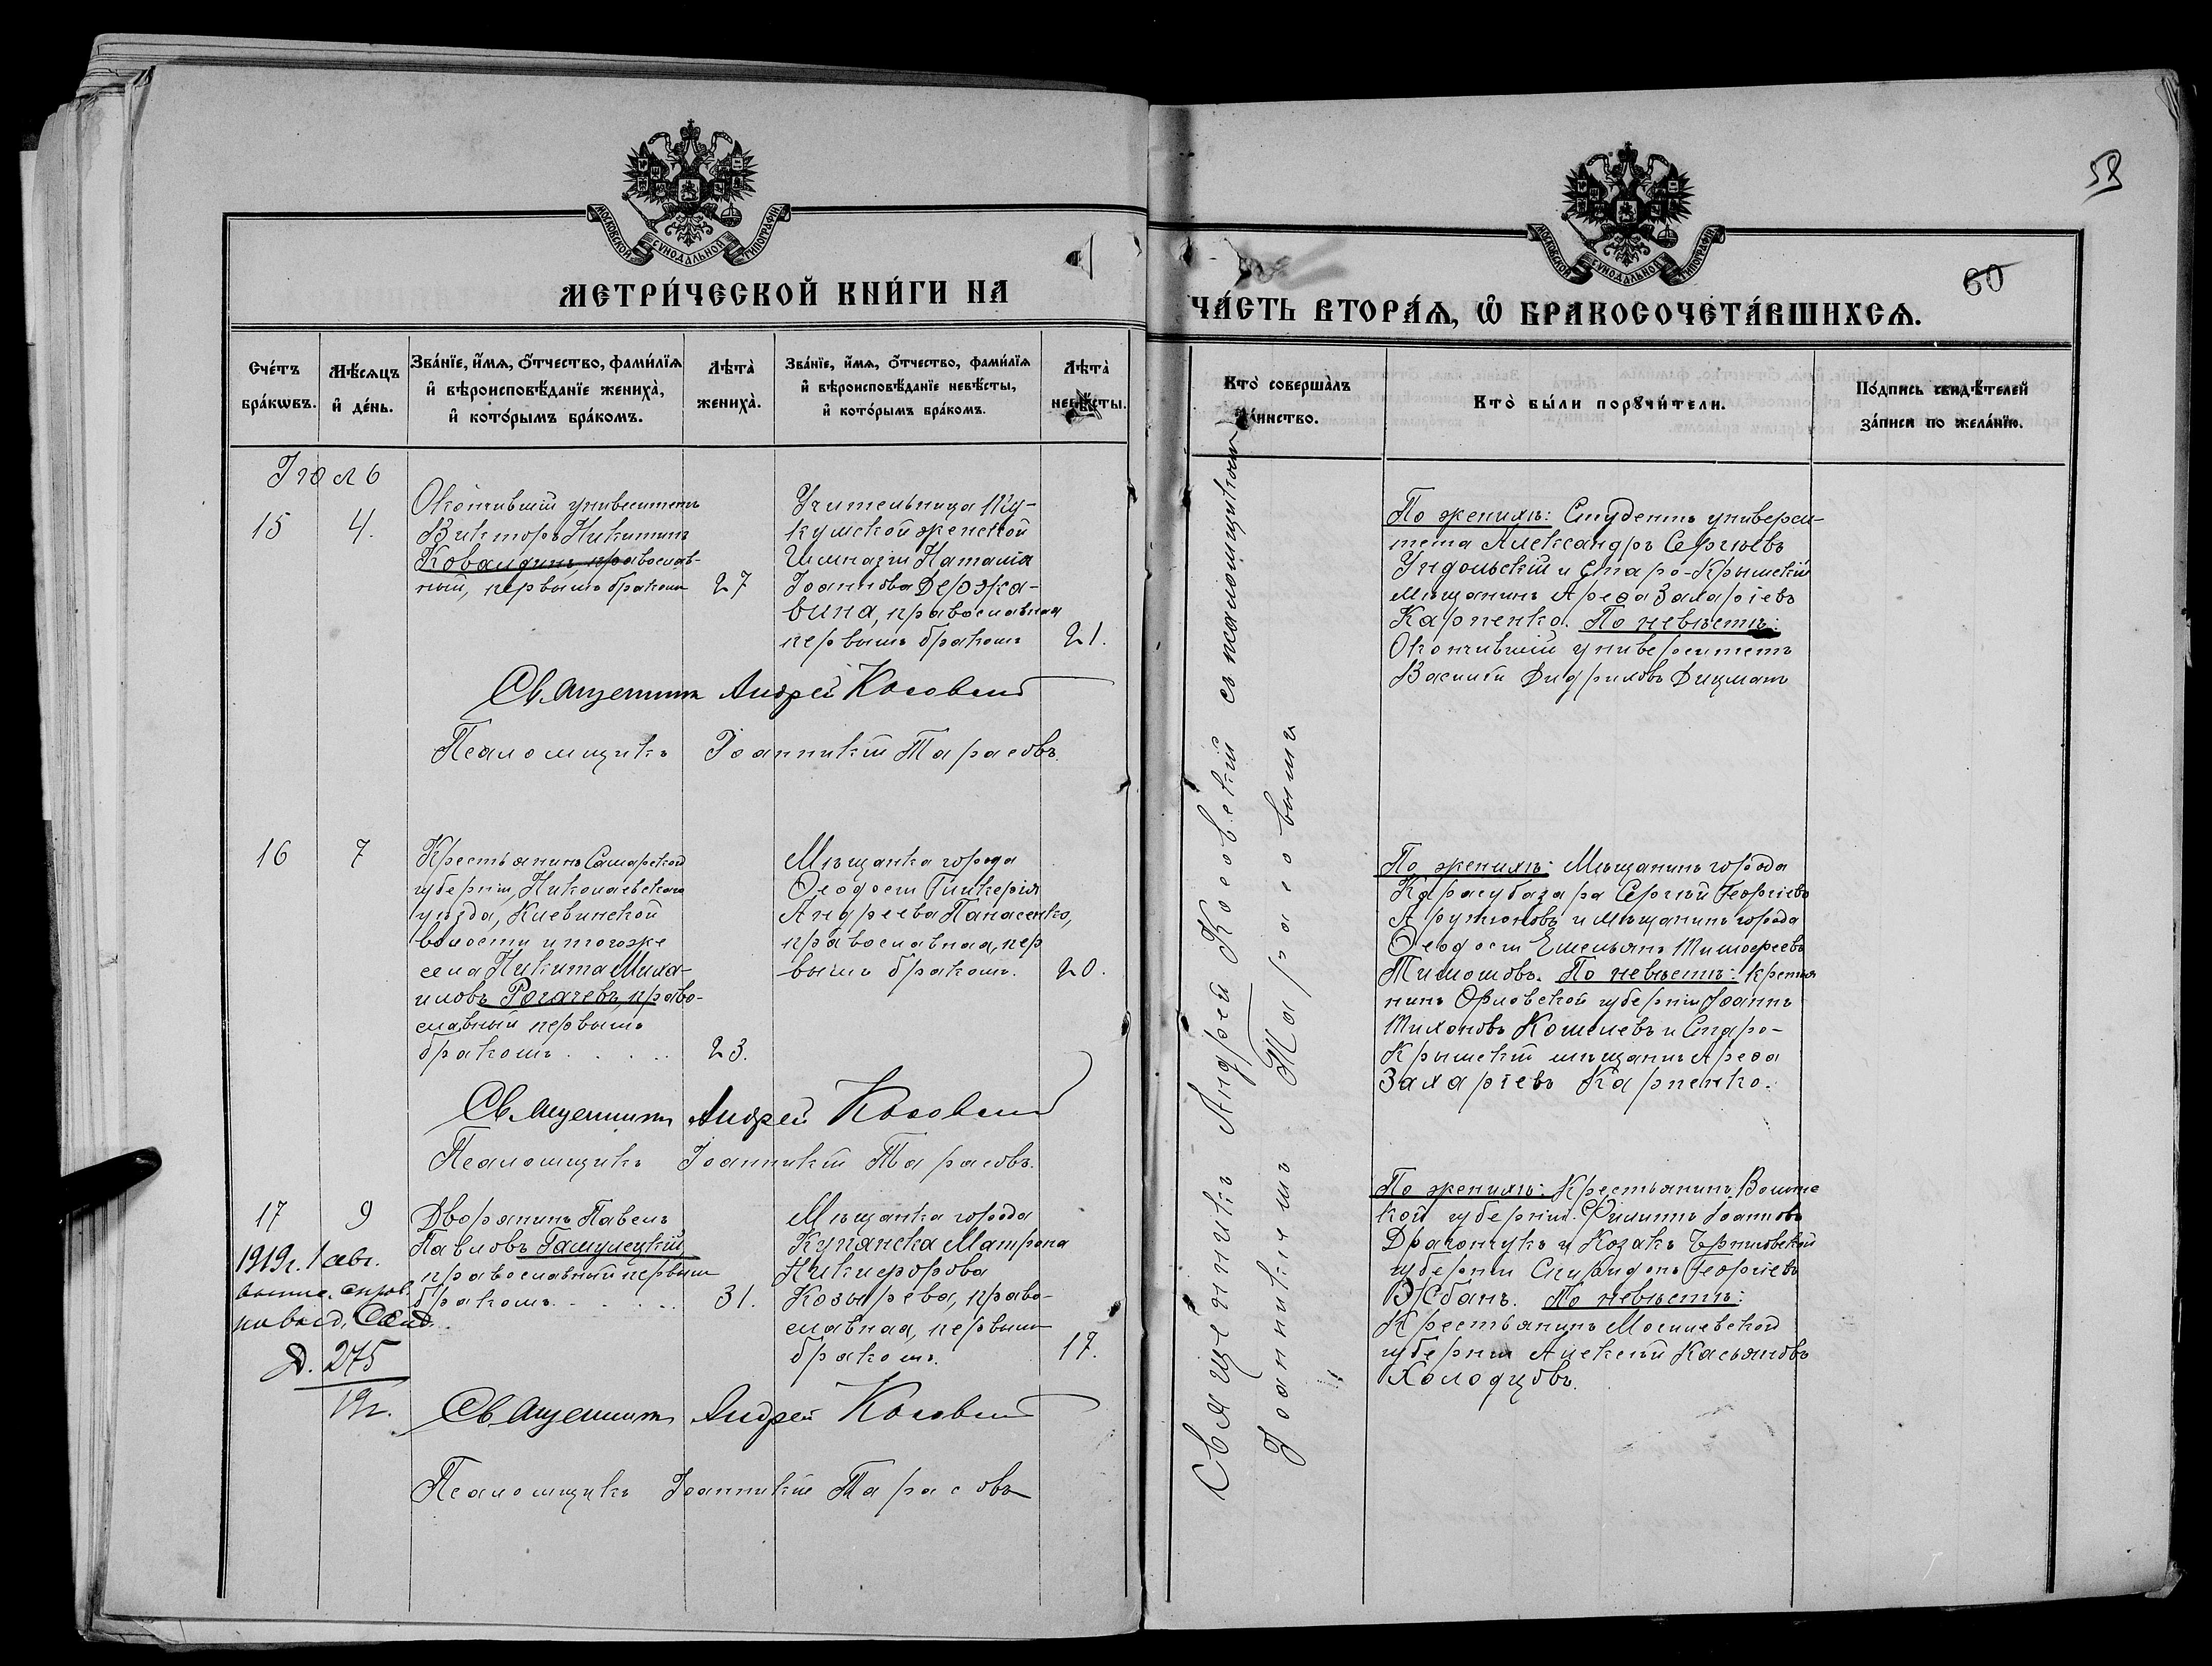 МОСКОВСКОЙ СѴНОДАЛЬНОЙ ТИПОГРАФІИ
МЕТРИ́ЧЕСКОЙ КНИ́ГИ НА
Сче́тъ бра́кѡвъ.
Мѣ́сѧцъ и҆ де́нь.
Зва́нїе, и҆́мѧ, ѻ҆́тчество, фами́лїѧ
и҆ вѣроисповѣ́данїе жениха̀,
и҆ кото́рымъ бра́комъ.
Лѣта̀ жениха̀.
Зва́нїе, и҆́мѧ, ѻ҆́тчество, фами́лїѧ
и҆ вѣроисповѣ́данїе невѣ́сты,
и҆ кото́рымъ бра́комъ.
Лѣта̀ невѣ́сты.
Іюль
15
4.
Окончившій университетъ
Викторъ Никитинъ
Ковалдинъ, православ-
ный, первымъ бракомъ
27
Учительница
кумской женской
Гимназіи Наталія
Іоаннова Держа-
вина, православная
первымъ бракомъ
21.
Священникъ Андрей Косовскій
Псаломщикъ Іоанникій Тарасовъ.
16
7
Крестьянинъ Самарской
губерніи, Николаевскаго
уѣзда, Клевинской
волости и того же
села Никита Миха-
иловъ Рогачевъ, право-
славный первымъ
бракомъ.
23.
Мѣщанка города
Ѳеодосіи Гликерія
Андреева Панасенко,
православная, пер
вымъ бракомъ.
20.
Священникъ Андрей Косовскій
Псаломщикъ Іоанникій Тарасовъ.
17
9
1919г. 1 авг.
выпис.
Д. 275
19г.
Дворянинъ Павелъ
Павловъ Гамулецкій,
православный первымъ
бракомъ
31.
Мѣщанка города
Купянска Матрона
Никифорова
Козырева, право-
славная, первымъ
бракомъ.
17.
Священникъ Андрей Косовскій
Псаломщикъ Іоанникій Тарасовъ
58
60
МОСКОВСКОЙ СѴНОДАЛЬНОЙ ТИПОГРАФІИ
ЧА́СТЬ ВТОРА́Ѧ, Ѡ҆ БРАКОСОЧЕТА́ВШИХСѦ.
Кто̀ соверша̀лъ та́инство.
Кто̀ бы́ли порꙋчи́тели.
По́дпись свидѣ́телей
за́писи по жела́нїю.
Священникъ Андрей Косовскій съ псаломщикомъ
Іоанникіемъ Тарасовымъ
По женихѣ: Студентъ универси-
тета Александръ Сергѣевъ
Ундольскій и Старо-Крымскій
мѣщанинъ Арефа Захаріевъ
Карпенко. По невѣстѣ:
Окончившій университетъ
Василій Дидриховъ Дицманъ
По женихѣ: Мѣщанинъ города
Карасубазара Сергѣй Георгіевъ
Арутюновъ и мѣщанинъ города
Ѳеодосіи Емельянъ Тимофеевъ
Тимошовъ. По невѣстѣ: крестья
нинъ Орловской губерніи Іоаннъ
Тихоновъ Кошелевъ и Старо-
Крымскій мѣщанинъ Арефа
Захаріевъ Карпенко.
По женихѣ: Крестьянинъ Волынс
кой губерніи Филиппъ Іоанновъ
Драгончукъ и Козакъ Черниговской
губерніи Спиридонъ Георгіевъ
Жбанъ. По невѣстѣ:
Крестьянинъ Могилевской
губерніи Алексѣй Касьяновъ
Холодцовъ.